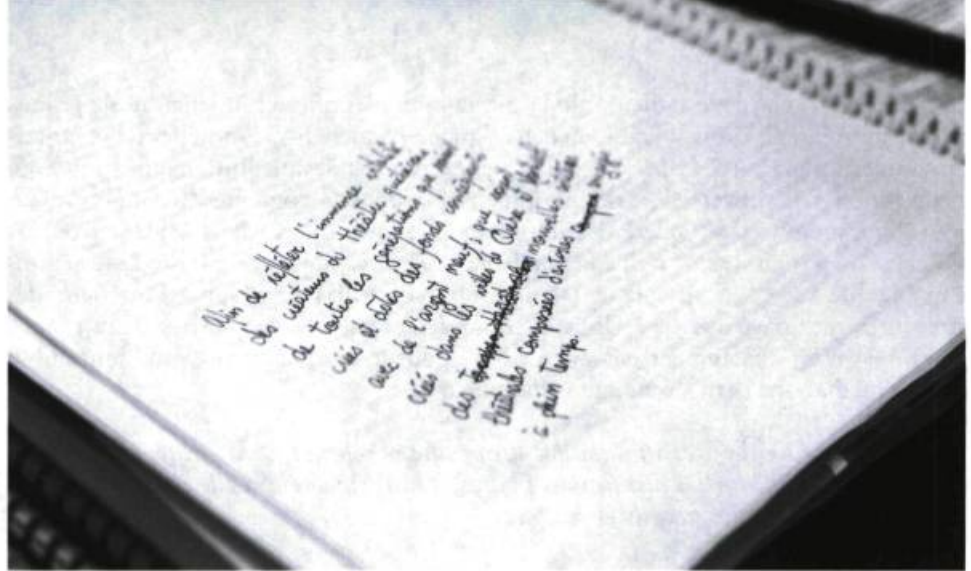 Afin de refléter l'immense
des créateurs de théâtre québécois
de toutes les générations, que soient
créés et dotés des fonds conséquents
avec de l'argent neuf ; que soient
créés dans les villes de
des nouvelles entités
théâtrales composées d'artistes engagés
à plein temps.